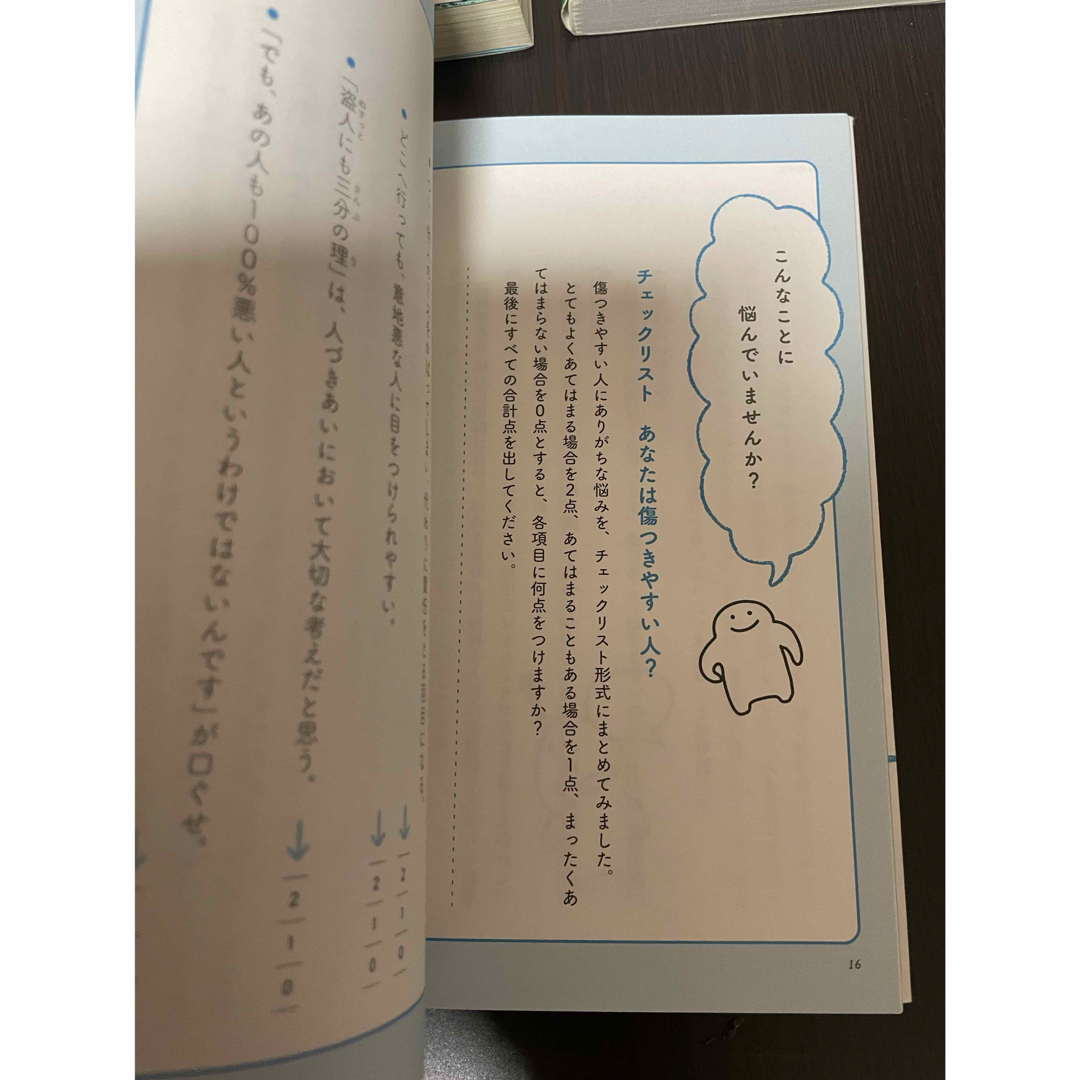 こんなことに
悩んでいませんか？
チェックリスト　あなたは傷つきやすい人？
傷つきやすい人にありがちな悩みを、チェックリスト形式にまとめてみました。
とてもよくあてはまる場合を2点、あてはまることもある場合を1点、まったくあ
てはまらない場合を0点とすると、各項目に何点をつけますか？
最後にすべての合計点を出してください。
16
↓ 2 1 0
・どこへ行っても、意地悪な人に目をつけられやすい。
↓ 2 1 0
・「盗人にも三分の理」は、人づきあいにおいて大切な考えだと思う。
ぬすっと
さんぶ
り
↓ 2 1 0
・「でも、あの人も100％悪い人というわけではないんです」が口ぐせ。